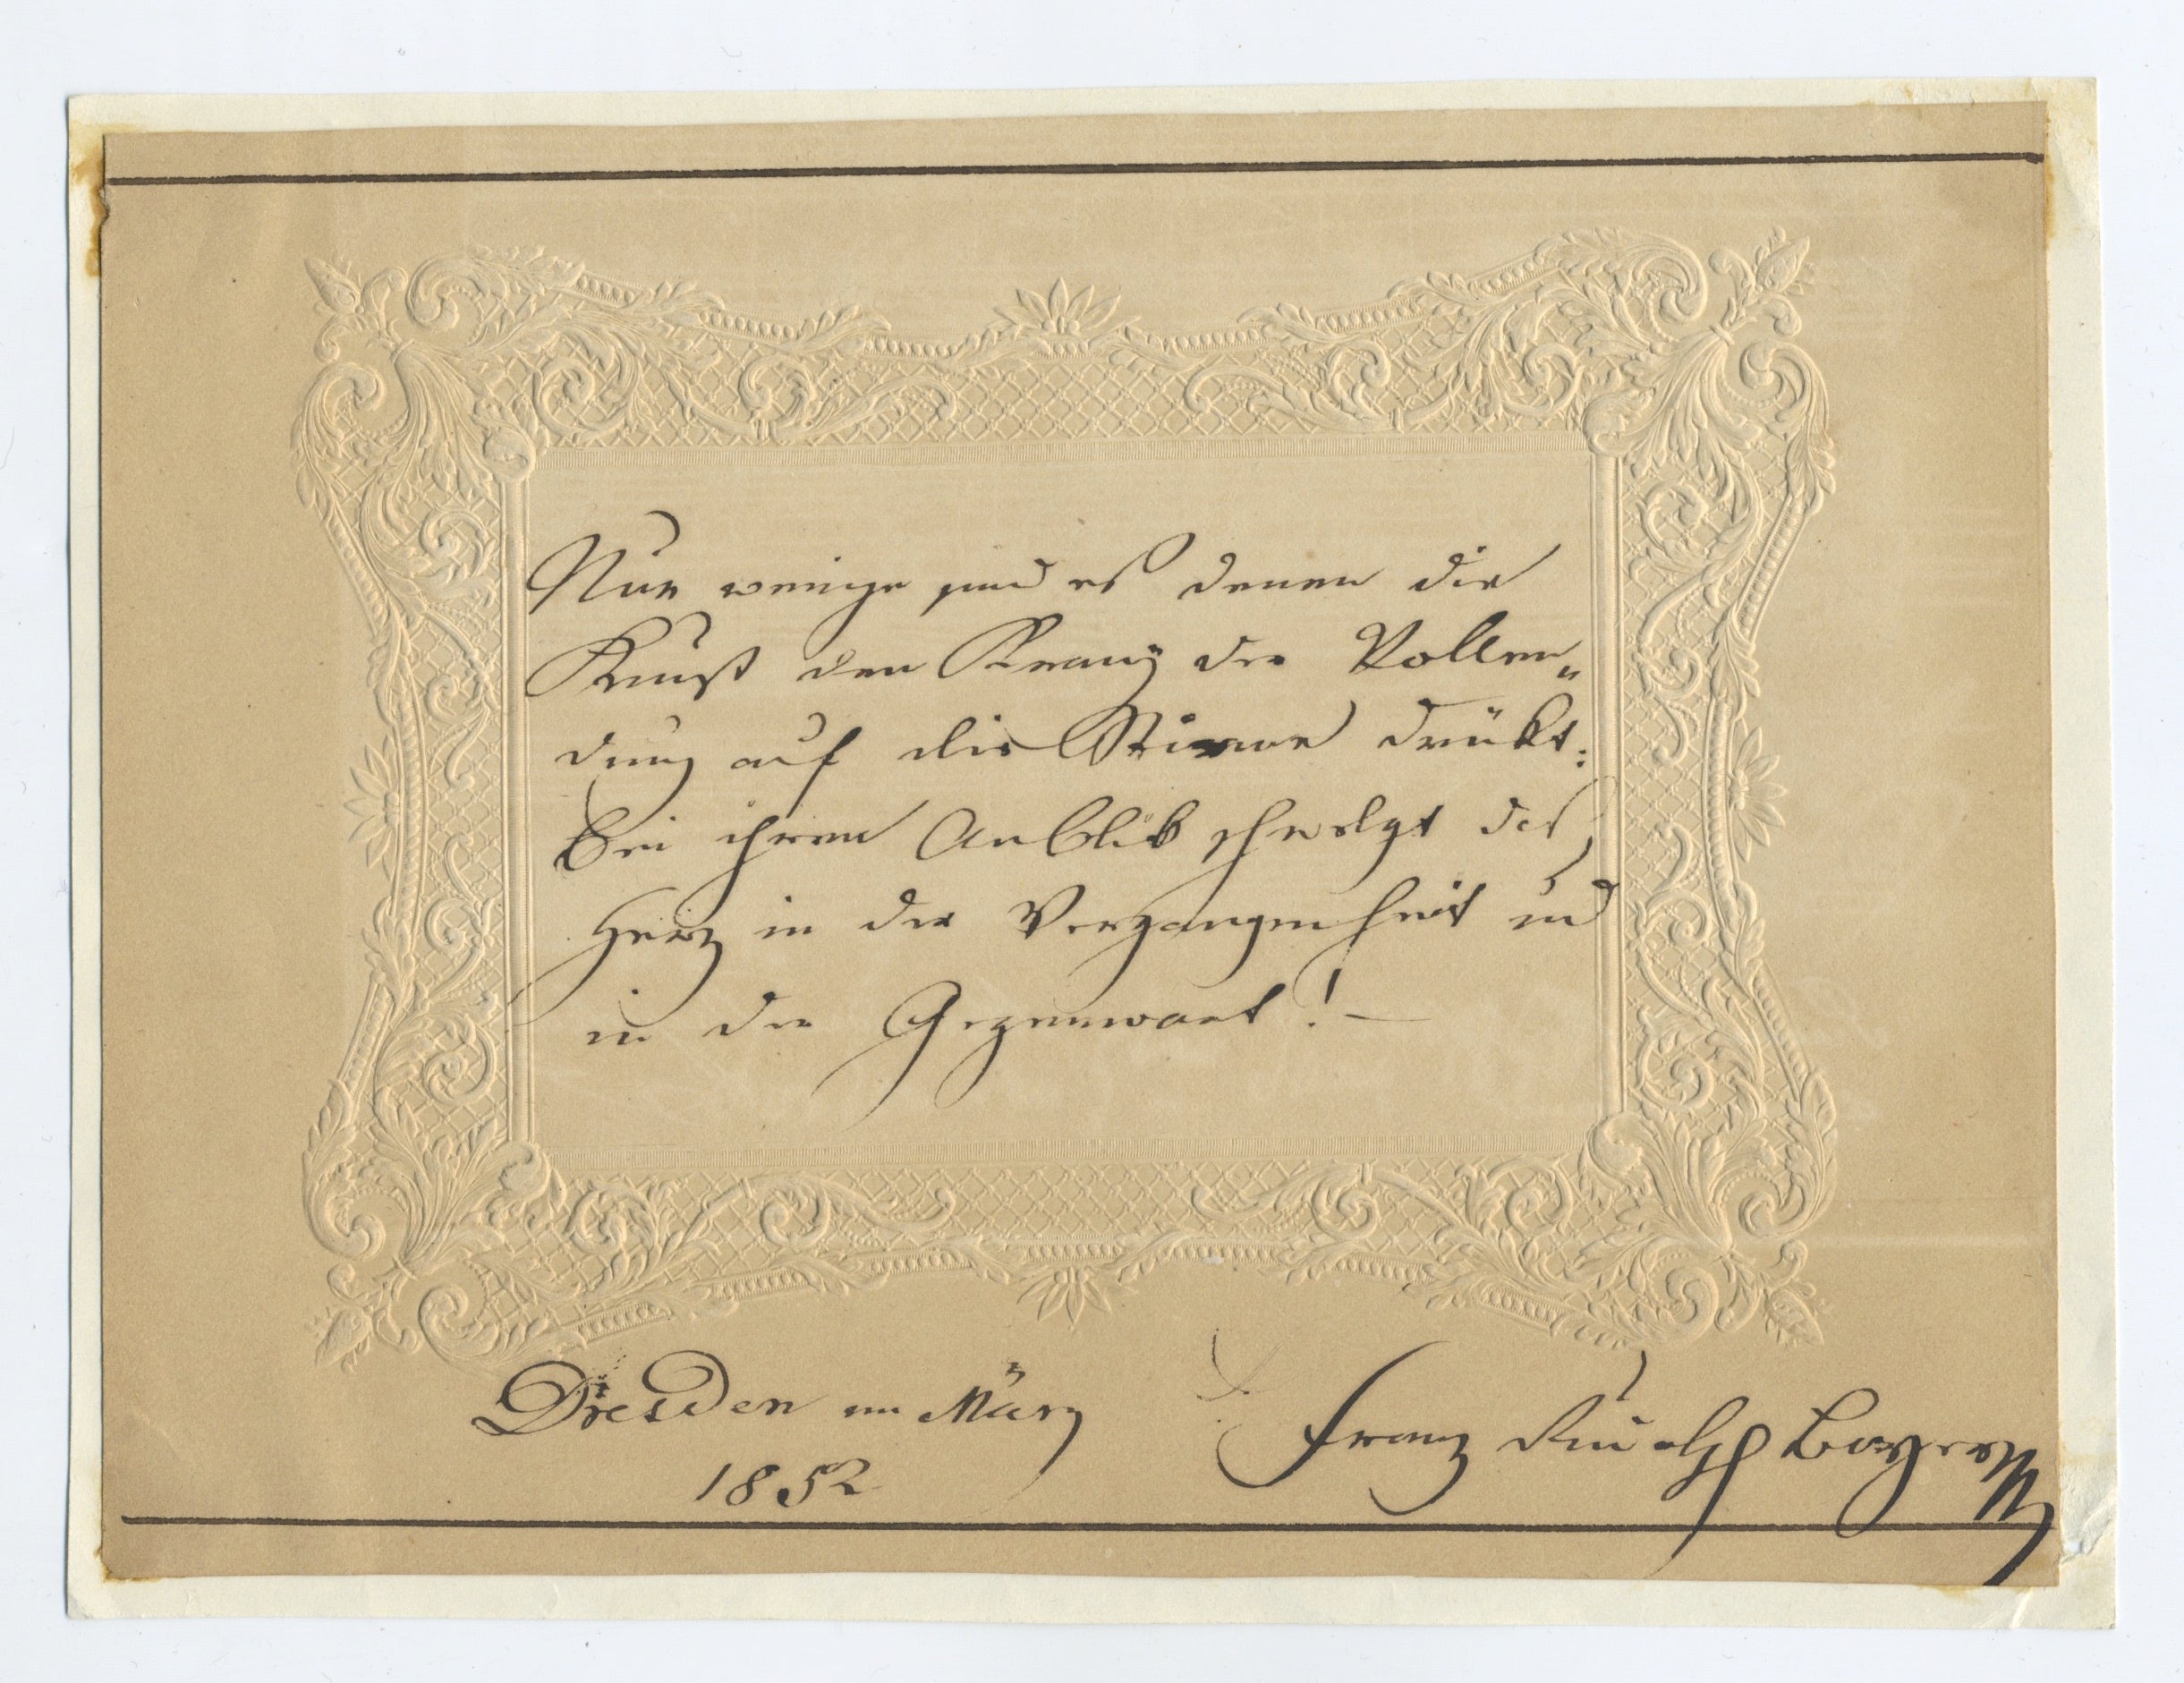 Nur wenige sind es denen die
Kunst den Kranz der Vollen„
dung auf die Stirne drükt:
Bei ihrem Anblik schwelgt das
Herz in der Vergangenheit und
in der Gegenwart! —
Dresden im März
1852
Franz Rudolph Bayer